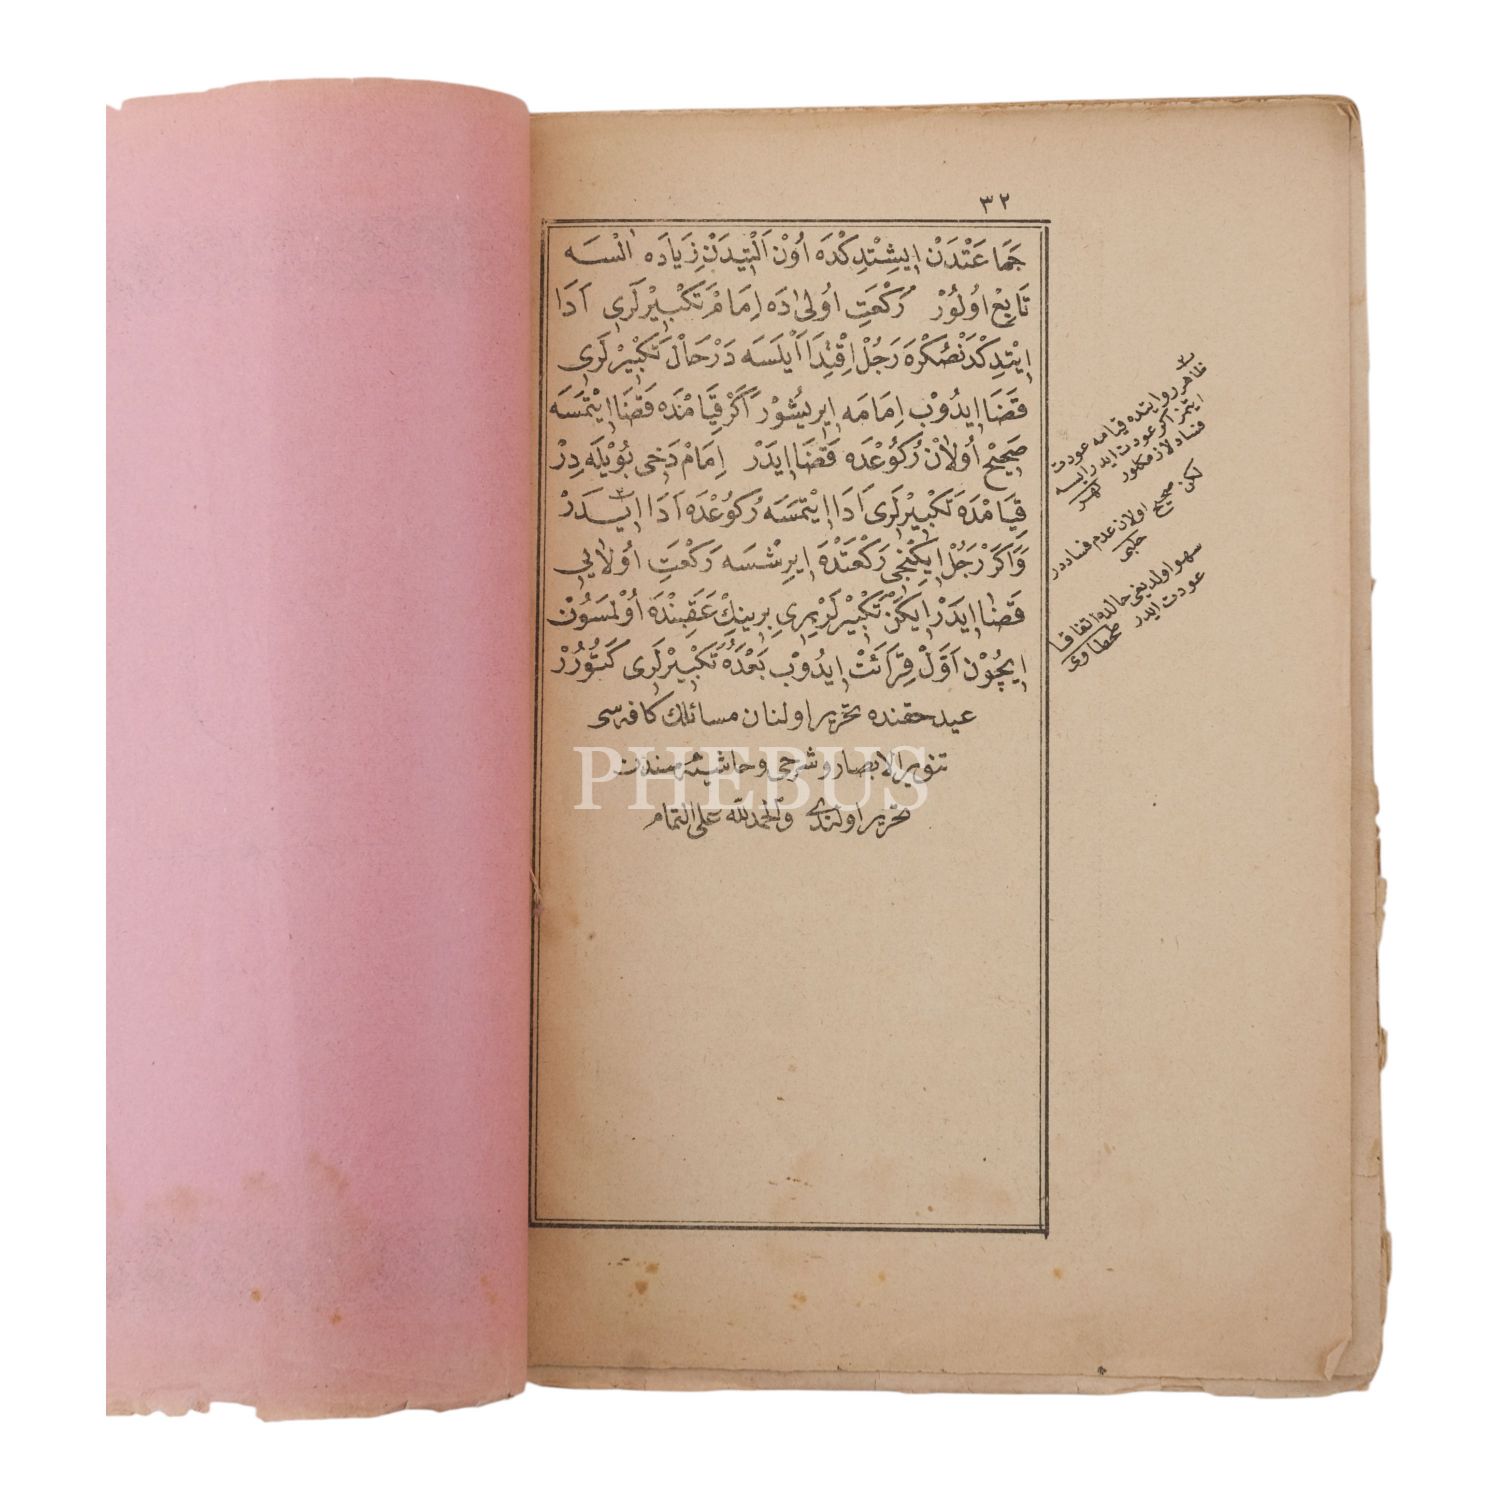 ٣٢
جَمَاعَتْدَنْ اِيشِتْدِكْدَه اُوْنْ اَلْتِيدَنْ زِيَادَه اٰلْسَه
تَابِعْ اُولُوْرْ رَكْعَتِ اُولٰى دَه اِمَامْ تَكْبِيْرلَرِى اَدَا
اِيْتدِكْدَنْصُكْرَه رَجُلْ اِقْتِدَا اَيْلَسَه دَرْحَالْ تَكْبِيْرْلَرِى
قَضَا اِيدُوْبْ اِمَامَه اِيرِيشُوْرْ اَكَرْ قِيَامْدَه قَضَا اِيْتمَسَه
صَحِيْحْ اُولاَنْ رُكُوْعْدَه قَضَا اِيدَرْ اِمَامْ دَخِى بُوْيلَه دِرْ
قِيَامْدَه تَكْبِيْرلَرِى اَدَا اِيْتمَسَه رُكُوْعْدَه اَدَا اِيدَرْ
وَاَكَرْ رَجُلْ اِيكِنْجِى رَكْعَتْدَه اِيرِشْسَه رَكْعَتِ اُولاَيِى
قَضَا اِيدَرْ اِيكَنْ تَكْبِيْرلَرْ بِرِى بِرِينِكْ عَقِبِنْدَه اُوْلمَسُوْنْ
اِيچُوْن اَوَّلْ قِرَائَتْ اِيدُوْبْ بَعْدَهُ تَكْبِيْرْلَرِى كَتُوُرُرْ
عيد حقنده تحرير اولنان مسائلك كافه سى
تنوير الابصار و شرحى و حاشيه سندن
تحرير اولندى والحمد لله على التمام
٣
ظاهر روايتده قيامه عودت
ايتمز اكر عودت ايدر ايسه
فساد لازم كلور نهر
لكن صحيح اولان عدم فساددر
حلبى
سهو اولديغى حالده اتفاقا
عودت ايدر طحطاوى
PHEBUS